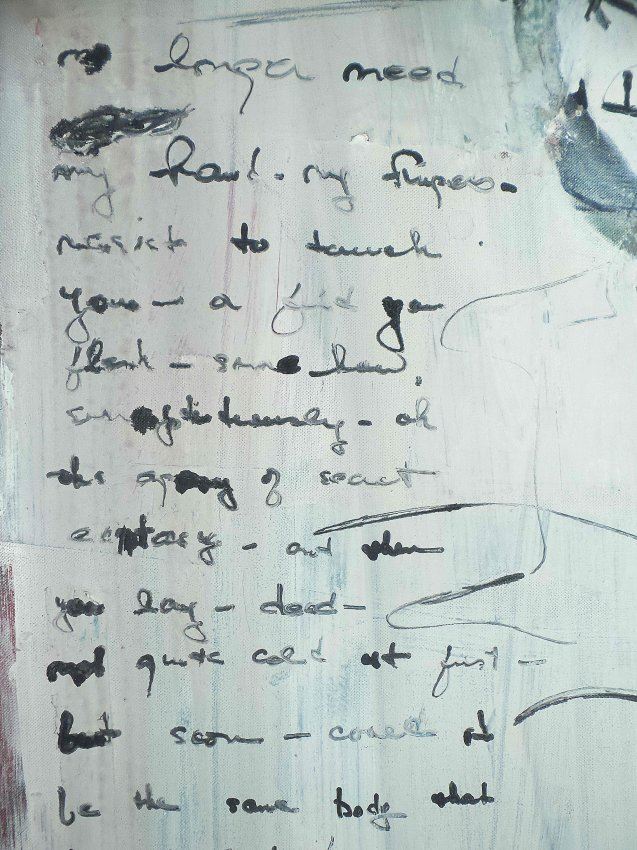 no longer need
my hand. my fingers.
to touch.
you - a
flesh - some how,
surreptitiously - oh
the agony of secret
ecstasy - and when
you lay - dead -
not quite cold at first -
but soon - could it
be the same body that